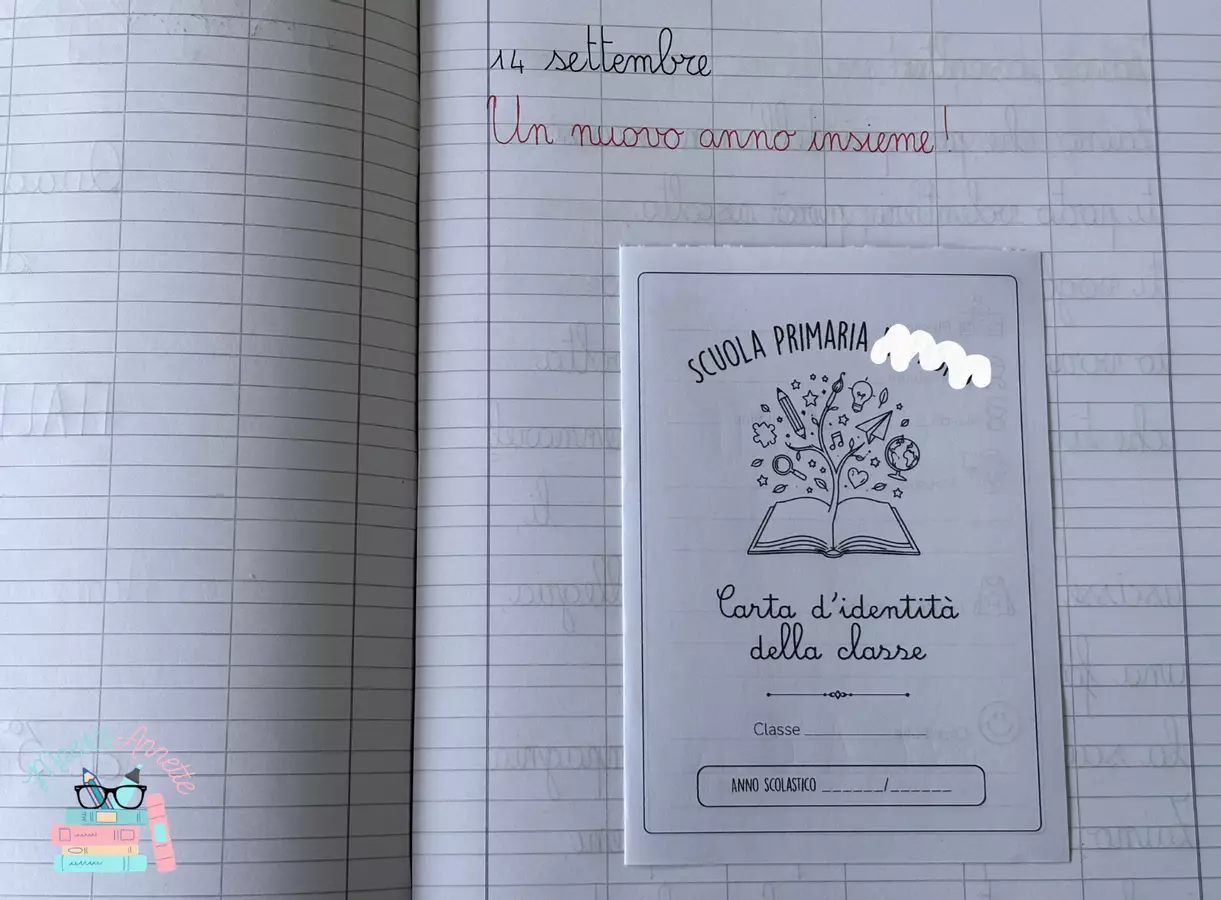 14 settembre
Un nuovo anno insieme!
SCUOLA PRIMARIA
Carta d'identità
della classe
Classe ____________
ANNO SCOLASTICO ______/______